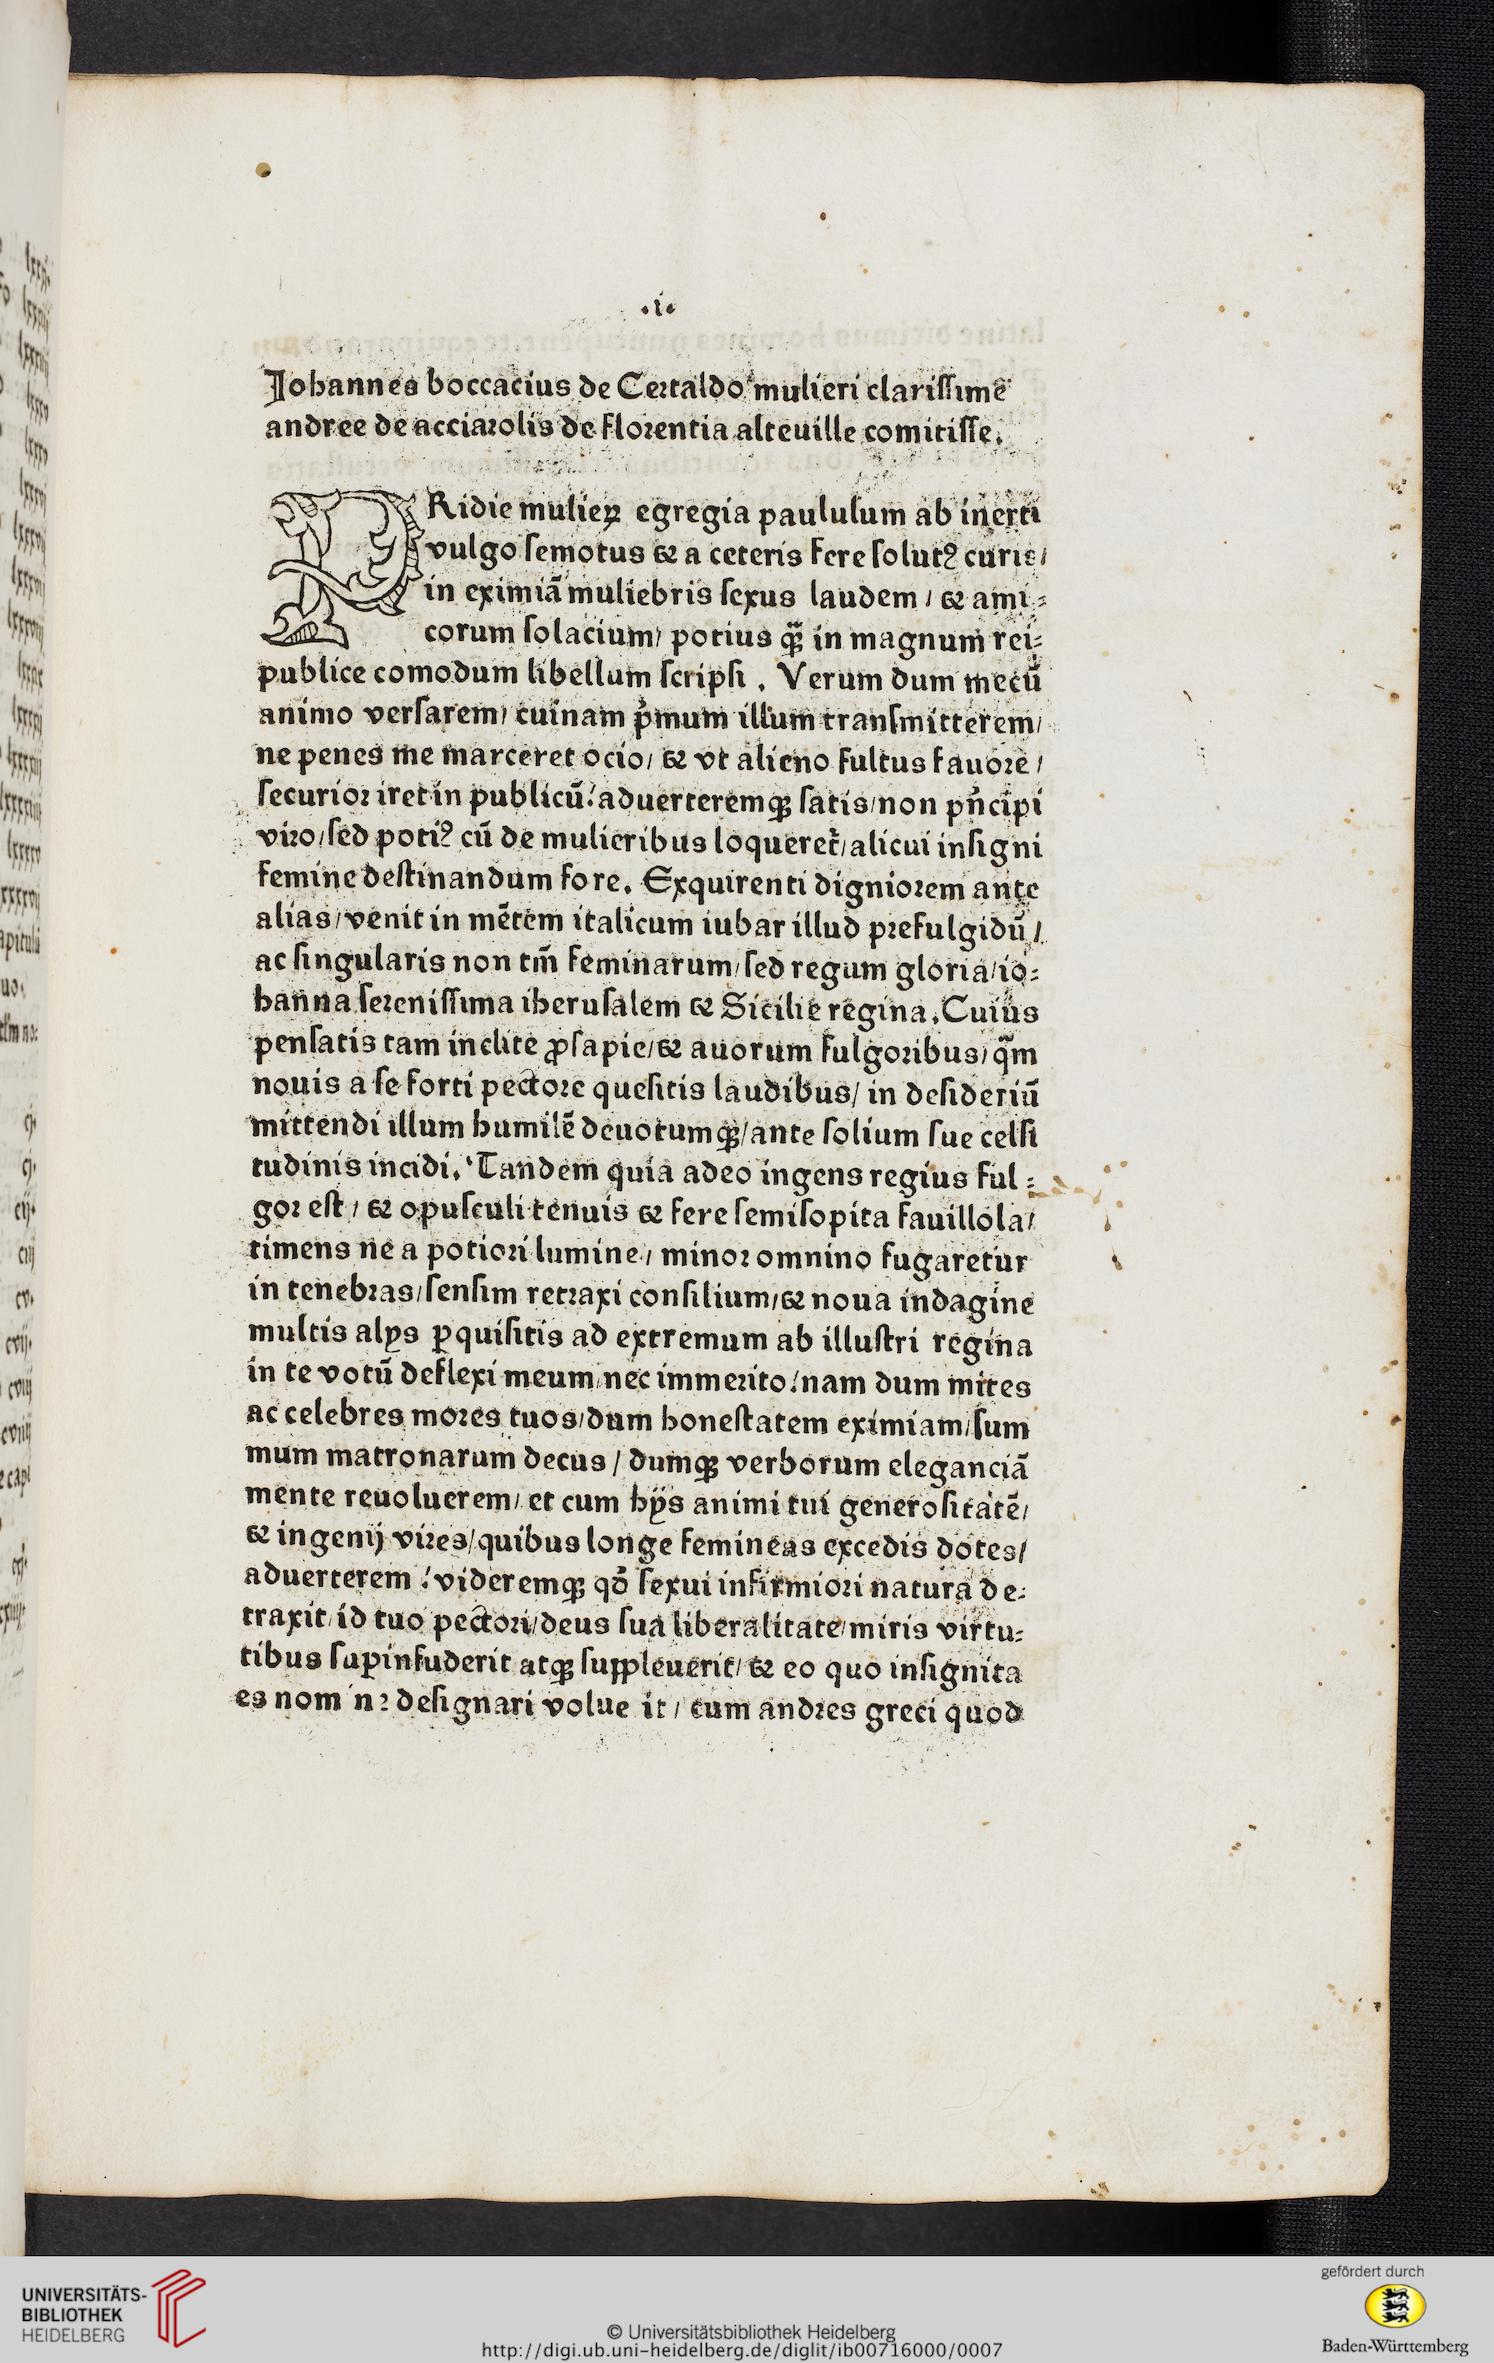 .i.
Johannes boccacius de Certaldo mulieri clarissime
andree de acciarolis de florentia alteuille comitisse.
PRidie mulieꝝ egregia paululum ab inerti
vulgo semotus & a ceteris fere solutꝰ curis/
in eximiā muliebris sexus laudem / & ami⸗
corum solacium/ potius qȝ̃ in magnum rei⸗
publice comodum libellum scripsi . Verum dum mecū
animo versarem/ cuinam p̍mum illum transmitterem/
ne penes me marceret ocio/ & vt alieno fultus fauore /
securior iret in publicū: aduerteremqȝ satis/non pñcipi
viro/sed potiꝰ cū de mulieribus loqueret᷑/alicui insigni
femine destinandum fore. Exquirenti digniorem ante
alias/venit in mētem italicum iubar illud prefulgidū /
ac singularis non tm̄ feminarum/sed regum gloria/io⸗
hanna serenissima iherusalem & Sicilie regina. Cuius
pensatis tam inclite ꝓsapie/& auorum fulgoribus/ q̄m
nouis a se forti pectore quesitis laudibus/ in desideriū
mittendi illum humilē deuotumqȝ/ante solium sue celsi
tudinis incidi. Tandem quia adeo ingens regius ful⸗
gor est / & opusculi tenuis & fere semisopita fauillola/
timens ne a potiori lumine / minor omnino fugaretur
in tenebras/sensim retraxi consilium/& noua indagine
multis alijs ꝑquisitis ad extremum ab illustri regina
in te votū deflexi meum/nec immerito: nam dum mites
ac celebres mores tuos/dum honestatem eximiam/sum
mum matronarum decus / dumqȝ verborum eleganciā
mente reuoluerem/ et cum hijs animi tui generositatē/
& ingenij vires/quibus longe femineas excedis dotes/
aduerterem : videremqȝ qd̍ sexui infirmiori natura de⸗
traxit/id tuo pectori/deus sua liberalitate/miris virtu⸗
tibus suꝑinfuderit atqȝ suppleuerit/ & eo quo insignita
es nom n2 designari volue it / cum andres greci quod
UNIVERSITÄTS-
BIBLIOTHEK
HEIDELBERG
© Universitätsbibliothek Heidelberg
http://digi.ub.uni-heidelberg.de/diglit/ib00716000/0007
gefördert durch
Baden-Württemberg